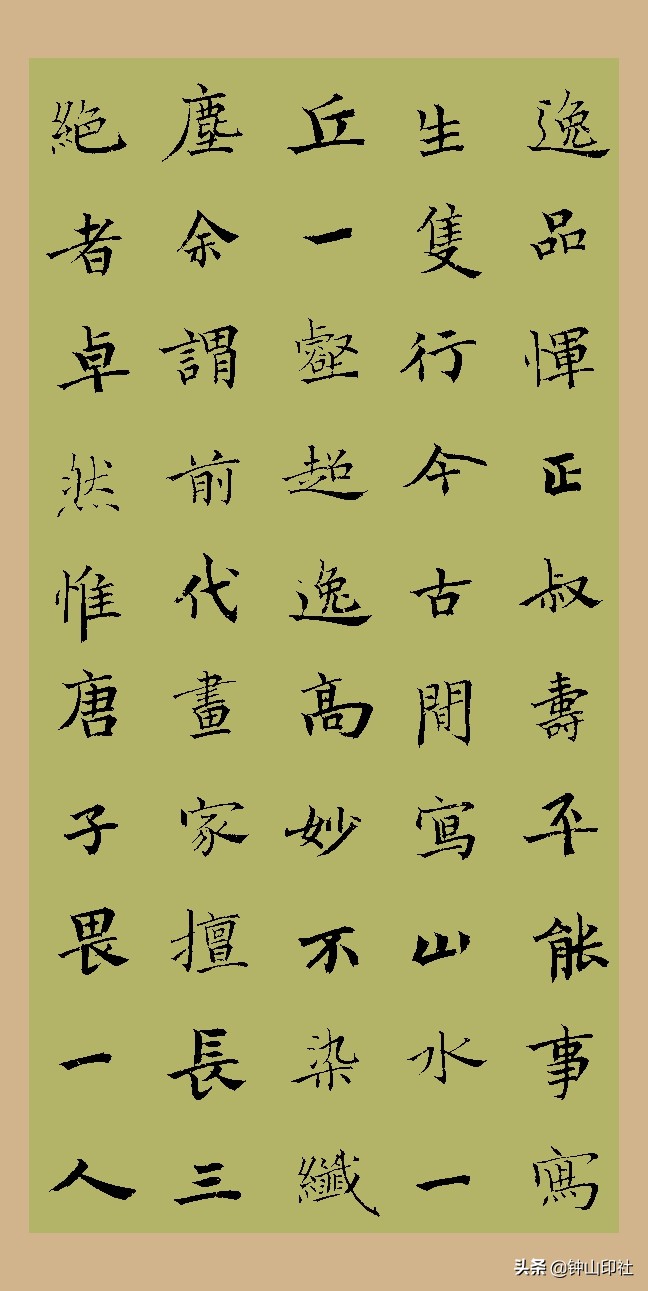 逸品惲正叔壽平能事寫
生隻行今古間寫山水一
丘一壑超逸高妙不染纖
塵余謂前代畫家擅長三
絕者卓然惟唐子畏一人
头条 @钟山印社